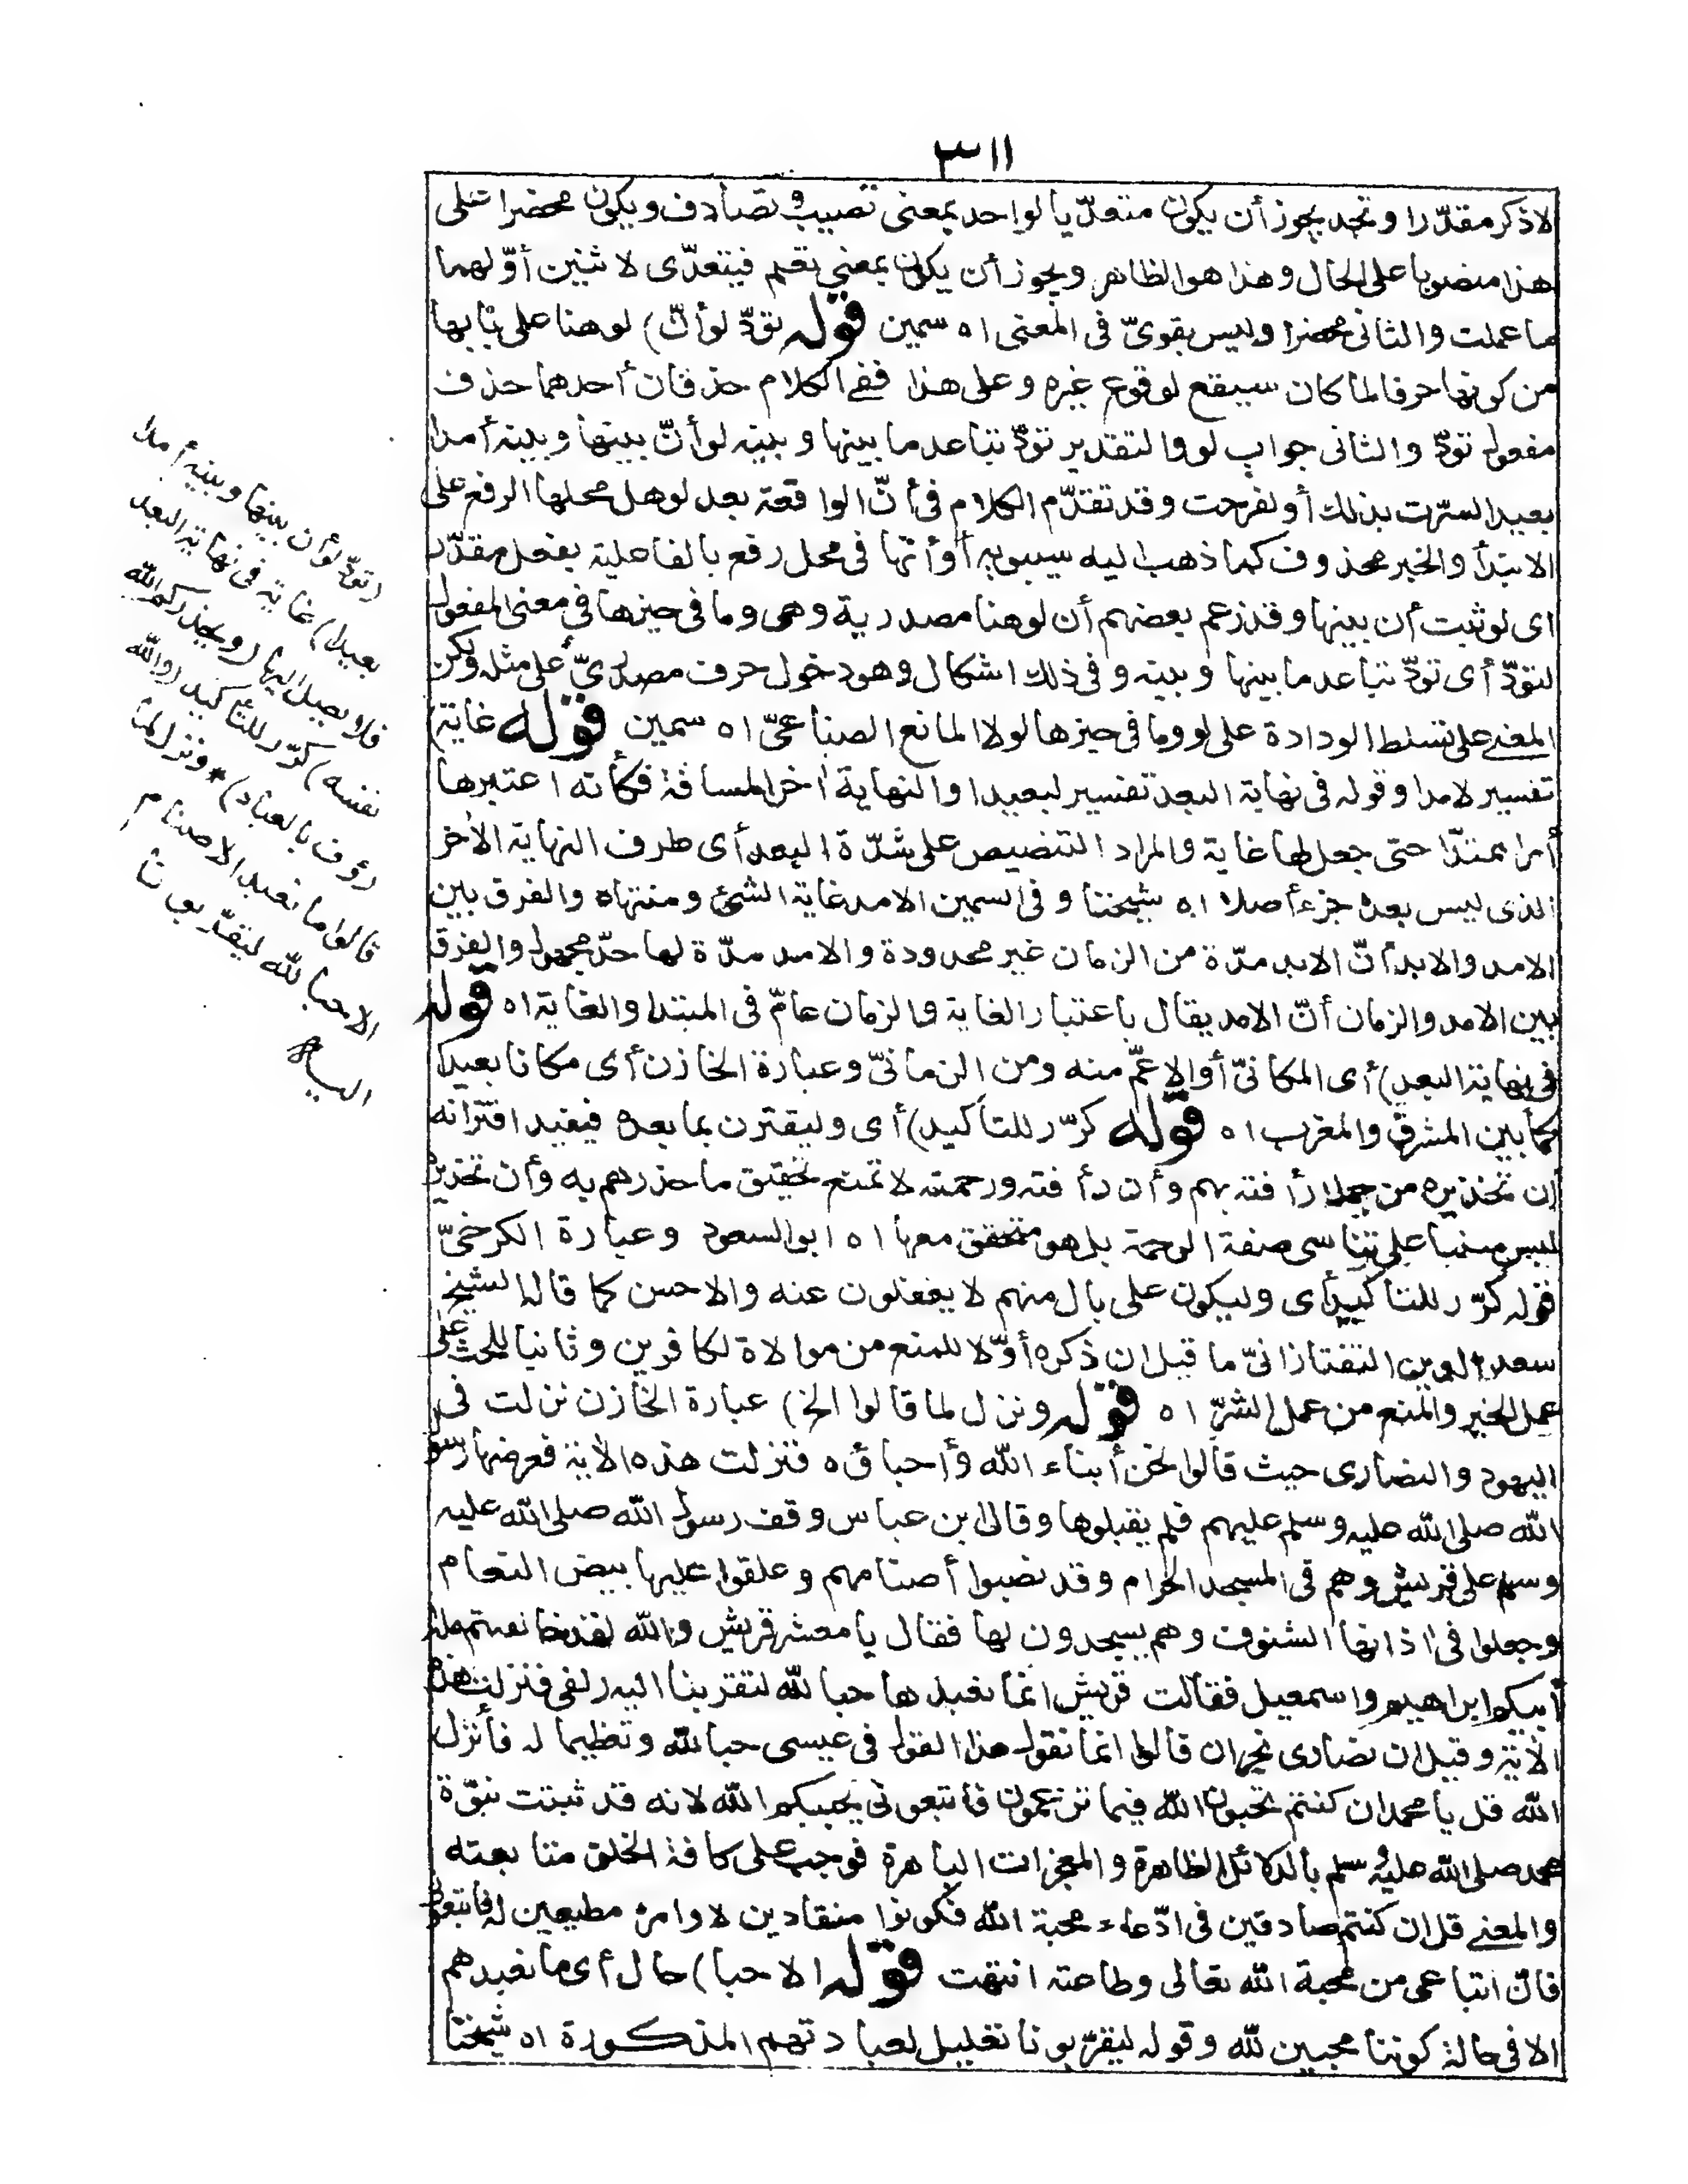 ٣١١
لاذكر مقدّرا وتجد يجوز أن يكون متعدّيا لواحد بمعنى تصيب وتصادف ويكون محضرا على
هذا منصوبا على الحال وهذا هو الظاهر ويجوز أن يكون بمعنى تعلم فيتعدّى لاثنين أوّلهما
ما عملت والثانى محضرا وليس بقوىّ فى المعنى اه سمين قوله تودّ لو أنّ) لو هنا على بابها
من كونها حرفا لما كان سيقع لوقوع غيره وعلى هذا ففى الكلام حذفان أحدهما حذف
مفعول تودّ والثانى جواب لو والتقدير تودّ تباعد ما بينها وبينه لو أنّ بينها وبينه أمدا
بعيدا لسرّت بذلك أو لفرحت وقد تقدّم الكلام فى أنّ الواقعة بعد لو هل محلها الرفع على
الابتدأ والخبر محذوف كما ذهب اليه سيبويه أو أنها فى محل رفع بالفاعلية بفعل مقدّر
اى لو ثبت أن بينها وقد زعم بعضهم أن لو هنا مصدرية وهى وما فى حيزها فى معنى المفعول
لتودّ أى تودّ تباعد ما بينها وبينه وفى ذلك اشكال وهو دخول حرف مصدرىّ على مثله ولكن
المعنى على تسلط الودادة على لو وما فى حيزها لولا المانع الصناعىّ اه سمين قوله غاية)
تفسير لامدا وقوله فى نهاية البعد تفسير لبعيدا والنهاية اٰخر المسافة فكأنه اعتبرها
أمرا ممتدّا حتى جعل لها غاية والمراد التنصيص على شدّة البعد أى طرف النهاية الأخر
الذى ليس بعده جزء أصلا اه شيخنا وفى السمين الامد غاية الشئ ومنتهاه والفرق بين
الامد والابد أنّ الابد مدّة من الزمان غير محدودة والامد مدّة لها حدّ مجهول والفرق
بين الامد والزمان أنّ الامد يقال باعتبار الغاية والزمان عامّ فى المبتدا والغاية اه قوله
فى نهاية البعد) أى المكانىّ أو الاعمّ منه ومن الزمانىّ وعبارة الخازن أى مكانا بعيدا
كما بين المشرق والمغرب اه قوله كرّر للتأكيد) أى وليقترن بما بعده فيفيد اقترانه
أن تحذيره من جملة رأفته بهم وأن رأفته ورحمته لا تمنع تحقيق ما حذرهم به وأن تحذيره
ليس مبنيا على تناسى صفة الرحمة بل هو متحقق معها اه ابوالسعود وعبارة الكرخىّ
قوله كرّر للتأكيد أى وليكون على بال منهم لا يغفلون عنه والاحسن كما قاله الشيخ
سعد الدين التفتازانىّ ما قيل ان ذكره أوّلا للمنع من موالاة الكافرين وثانيا للحث على
عمل الخير والمنع من عمل الشرّ اه قوله ونزل لما قالوا الخ) عبارة الخازن نزلت فى
اليهود والنصارى حيث قالوا نحن أبناء الله وأحباؤه فنزلت هذه الأية فعرضها رسول
الله صلى الله عليه وسلم عليهم فلم يقبلوها وقال ابن عباس وقف رسول الله صلى الله عليه
وسلم على قريش وهم فى المسجد الحرام وقد نصبوا أصنامهم وعلقوا عليها بيض النعام
وجعلوا فى اٰذانها الشنوف وهم يسجدون لها فقال يا معشر قريش والله لقد خالفتم ملة
أبيكم ابراهيم واسمعيل فقالت قريش انما نعبدها حبا لله لتقربنا اليه زلفى فنزلت هذه
الأية وقيل ان نصارى نجران قالوا انما نقول هذا القول فى عيسى حبا لله وتعظيما له فأنزل
الله قل يا محمد ان كنتم تحبون الله فيما تزعمون فاتبعونى يحببكم الله لانه قد ثبتت نبوّة
محمد صلى الله عليه وسلم بالدلائل الظاهرة والمعجزات الباهرة فوجب على كافة الخلق متابعته
والمعنى قل ان كنتم صادقين فى ادّعاء محبة الله فكونوا منقادين لاوامره مطيعين له فاتبعونى
فانّ اتباعى من محبة الله تعالى وطاعته انتهت قوله الا حبا) حال أى ما نعبدهم
الا فى حالة كوننا محبين لله وقوله ليقرّبونا تعليل لعبادتهم المذكورة اه شيخنا
(تودّ لو أن بينها وبينه أمدا
بعيدا) غاية فى نهاية البعد
فلا يصل اليها (ويحذركم الله
نفسه) كرّر للتأكيد (والله
رؤف بالعباد) * ونزل لما
قالوا ما نعبد الاصنام
الا حبا لله ليقرّبونا
اليه